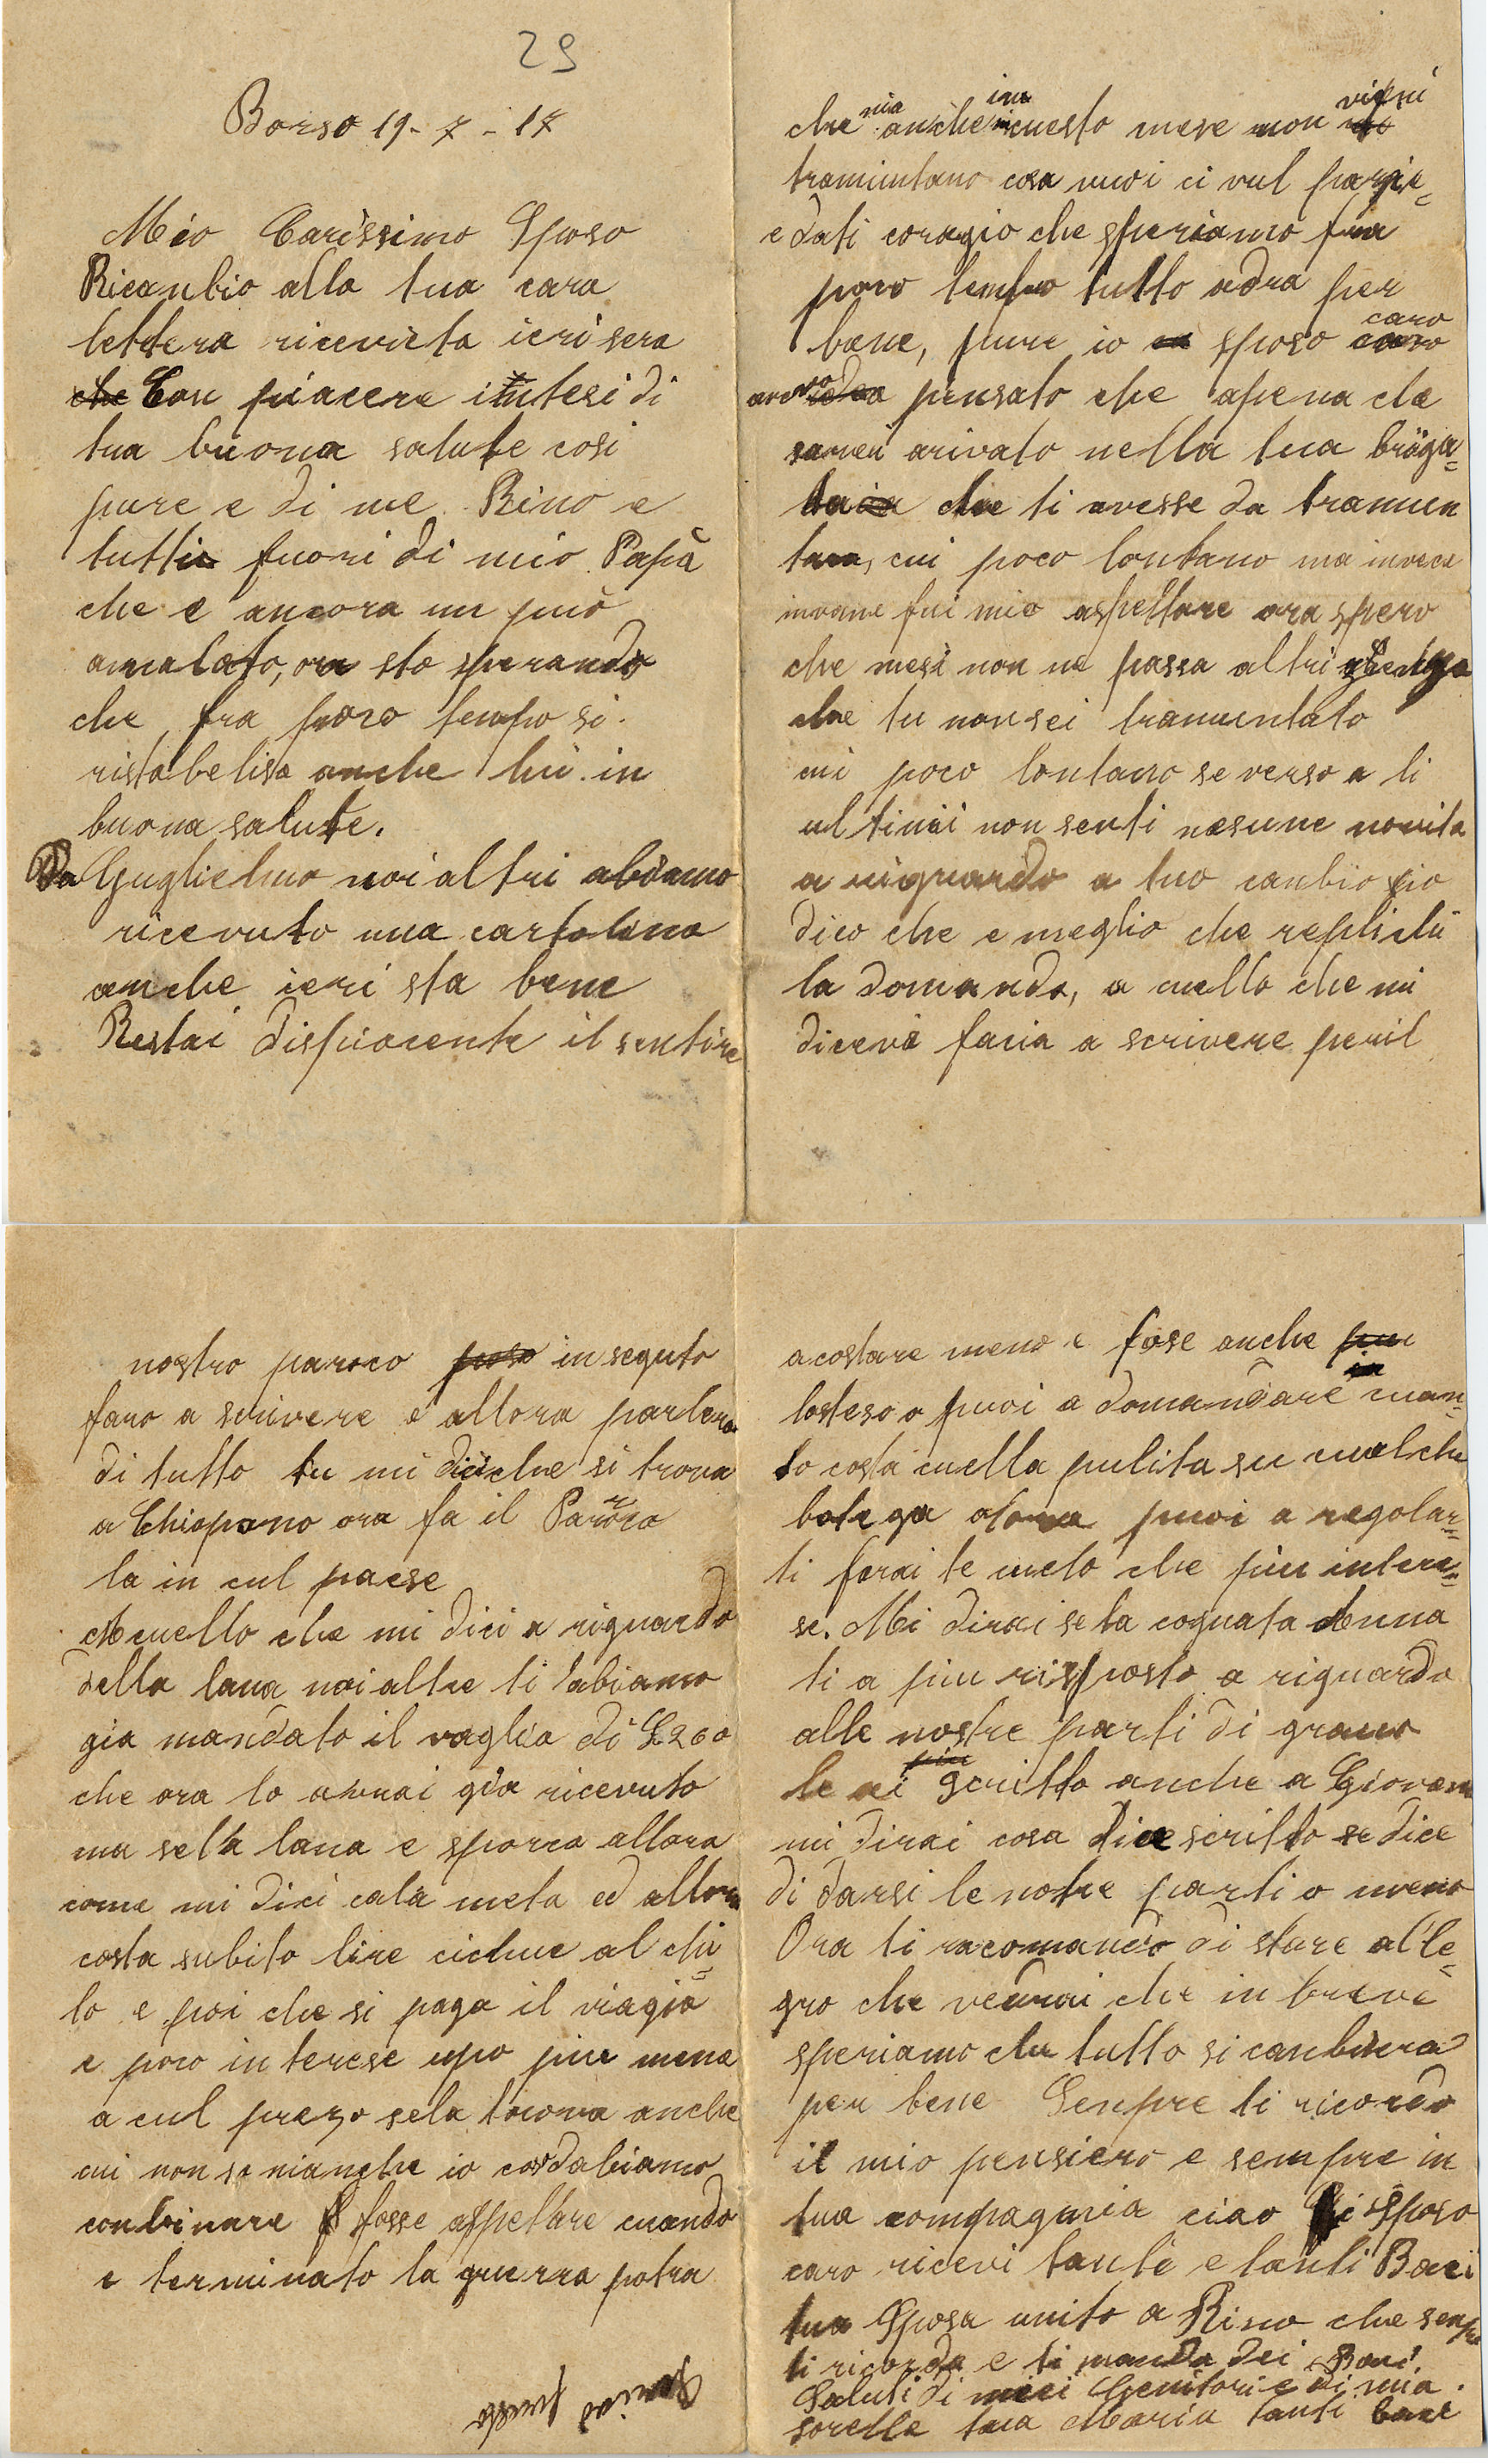 29
Borso 19-7-17
Mio Carissimo Sposo
Ricanbio alla tua cara
lettera ricevuta ieri sera
che Con piacere intesi di
tua buona salute cosi
pure e di me Rino e
tutti fuori di mio Papà
che e ancora un puo
amalato, ora sto sperando
che fra poco tempo si
ristabelisa anche lui in
buona salute.
Da Guglielmo noi altri abiamo
ricevuto una cartolina
anche ieri sta bene
Restai dispiacente il sentire
che mia anche in cuesto mese non vieni
tramuntano cosa vuoi ci vul pazie=
e dati coragio che speriamo fra
poco tenpo tutto adra per
bene, pure io sposo caro
avevo pensato che apena che
sarieu arivato nella tua briga=
taia che ti avesse da tramun
tare, cui poco lontano ma invece
invane fui mio aspettare ora spero
che mesi non ne passa altri
che tu non sei tramuntato
cui poco lontano se verso a li
ultimi non senti nesune novita
a riguardo a tuo canbio io
dico che e meglio che replichi
la domanda, a cuello che mi
dicevi facia a scrivere peril
nostro paroco poso in seguto
faro a scrivere e allora parlera
di tutto tu mi dici che si trova
a Chiopano ora fa il Paroco
la in cul paese
A cuello che mi dici a riguardo
della lana noi altre ti labiamo
gia mandato il vaglia di L 260
che ora lo avrai gia ricevuto
ma sela lana e sporca allora
come mi dici cala meta ed allora
costa subito lire cichue al chi=
lo e poi che si paga il viagio
e poco interese upo piu meno
a cul prezo sela trova anche
cui non so nianche io cosdabiamo
conbinare fosse aspettare cuando
e terminato la guerra potra
Scrivo presto
acostare meno e fose anche piu
losteso o puoi a domandare cuan=
to costa cuella pulita su cualche
botega alora puoi a regolar=
ti farai te cuelo che piu intere=
se. Mi dirai se la cognata Anna
ti a piu risposto a riguardo
alle nostre parti di grano
le ai piu scritto anche a Giovani
mi dirai cosa dice scritto se dice
di darsi le notre parti o meno
Ora ti racomando di stare alle=
gro che vedrai che in breve
speriamo che tutto si canbiera
per bene Senpre ti ricordo
il mio pensiero e sempre in
tua compagnia ciao Sposo
caro ricevi tanti e tanti Baci
tua Sposa unito a Rino che senpre
ti ricorda e ti manda dei Baci.
Saluti di miei Genitori e di mia
sorella tua Maria tanti baci